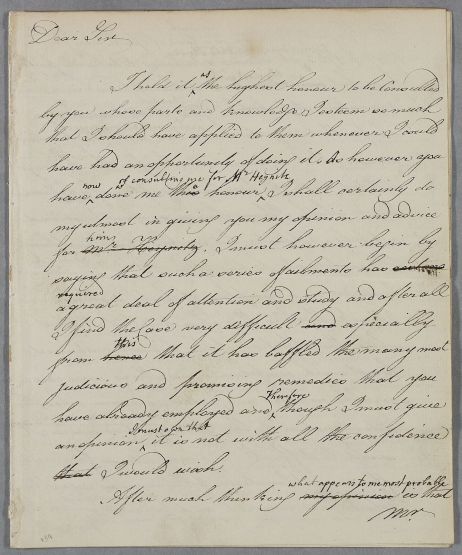 Dear Sir
I hold it as the highest honour to be Consulted
by you whose parts and knowledge I esteem so much
that I should have applied to them whenever I could
have had an opportunity of doing it. As however you
have now done me the honour of consulting me for Mr Heynitz I shall certainly do
my utmost in giving you my opinion and advice
for him Mr. Heynitz. I must however begin by
saying that such a series of ailments has
required
a great deal of attention and study and after all
I find the Case very difficult and especially
from this hence that it has baffled the many most
Judicious and promising remedies that you
have already employed and Therefore though I must give
an opinion I must own that it is not with all the confidence
that I would wish.
After much thinking what appears to me most probable my opinion is that
Mr.